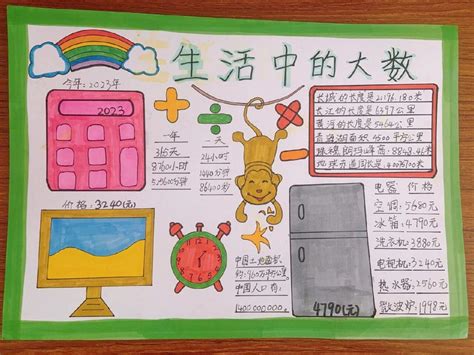 生活中的大数
今年:2023年
2023
一年
365天
8760小时
525600分钟
一天
24小时
1440分钟
86400秒
长城的长度是21196.180米
长江的长度是6397公里
黄河的长度是5464公里
青海湖面积4500平方公里
珠穆朗玛峰高:8848.43米
地球赤道周长是:40075700米
价格:3240(元)
中国土地面积:
约:960万平方公里
中国人口有:
1400000000
4790(元)
电器 价格
空调:5680元
冰箱:4790元
洗衣机:3880元
电视机:3240元
热水器:2560元
微波炉:1998元